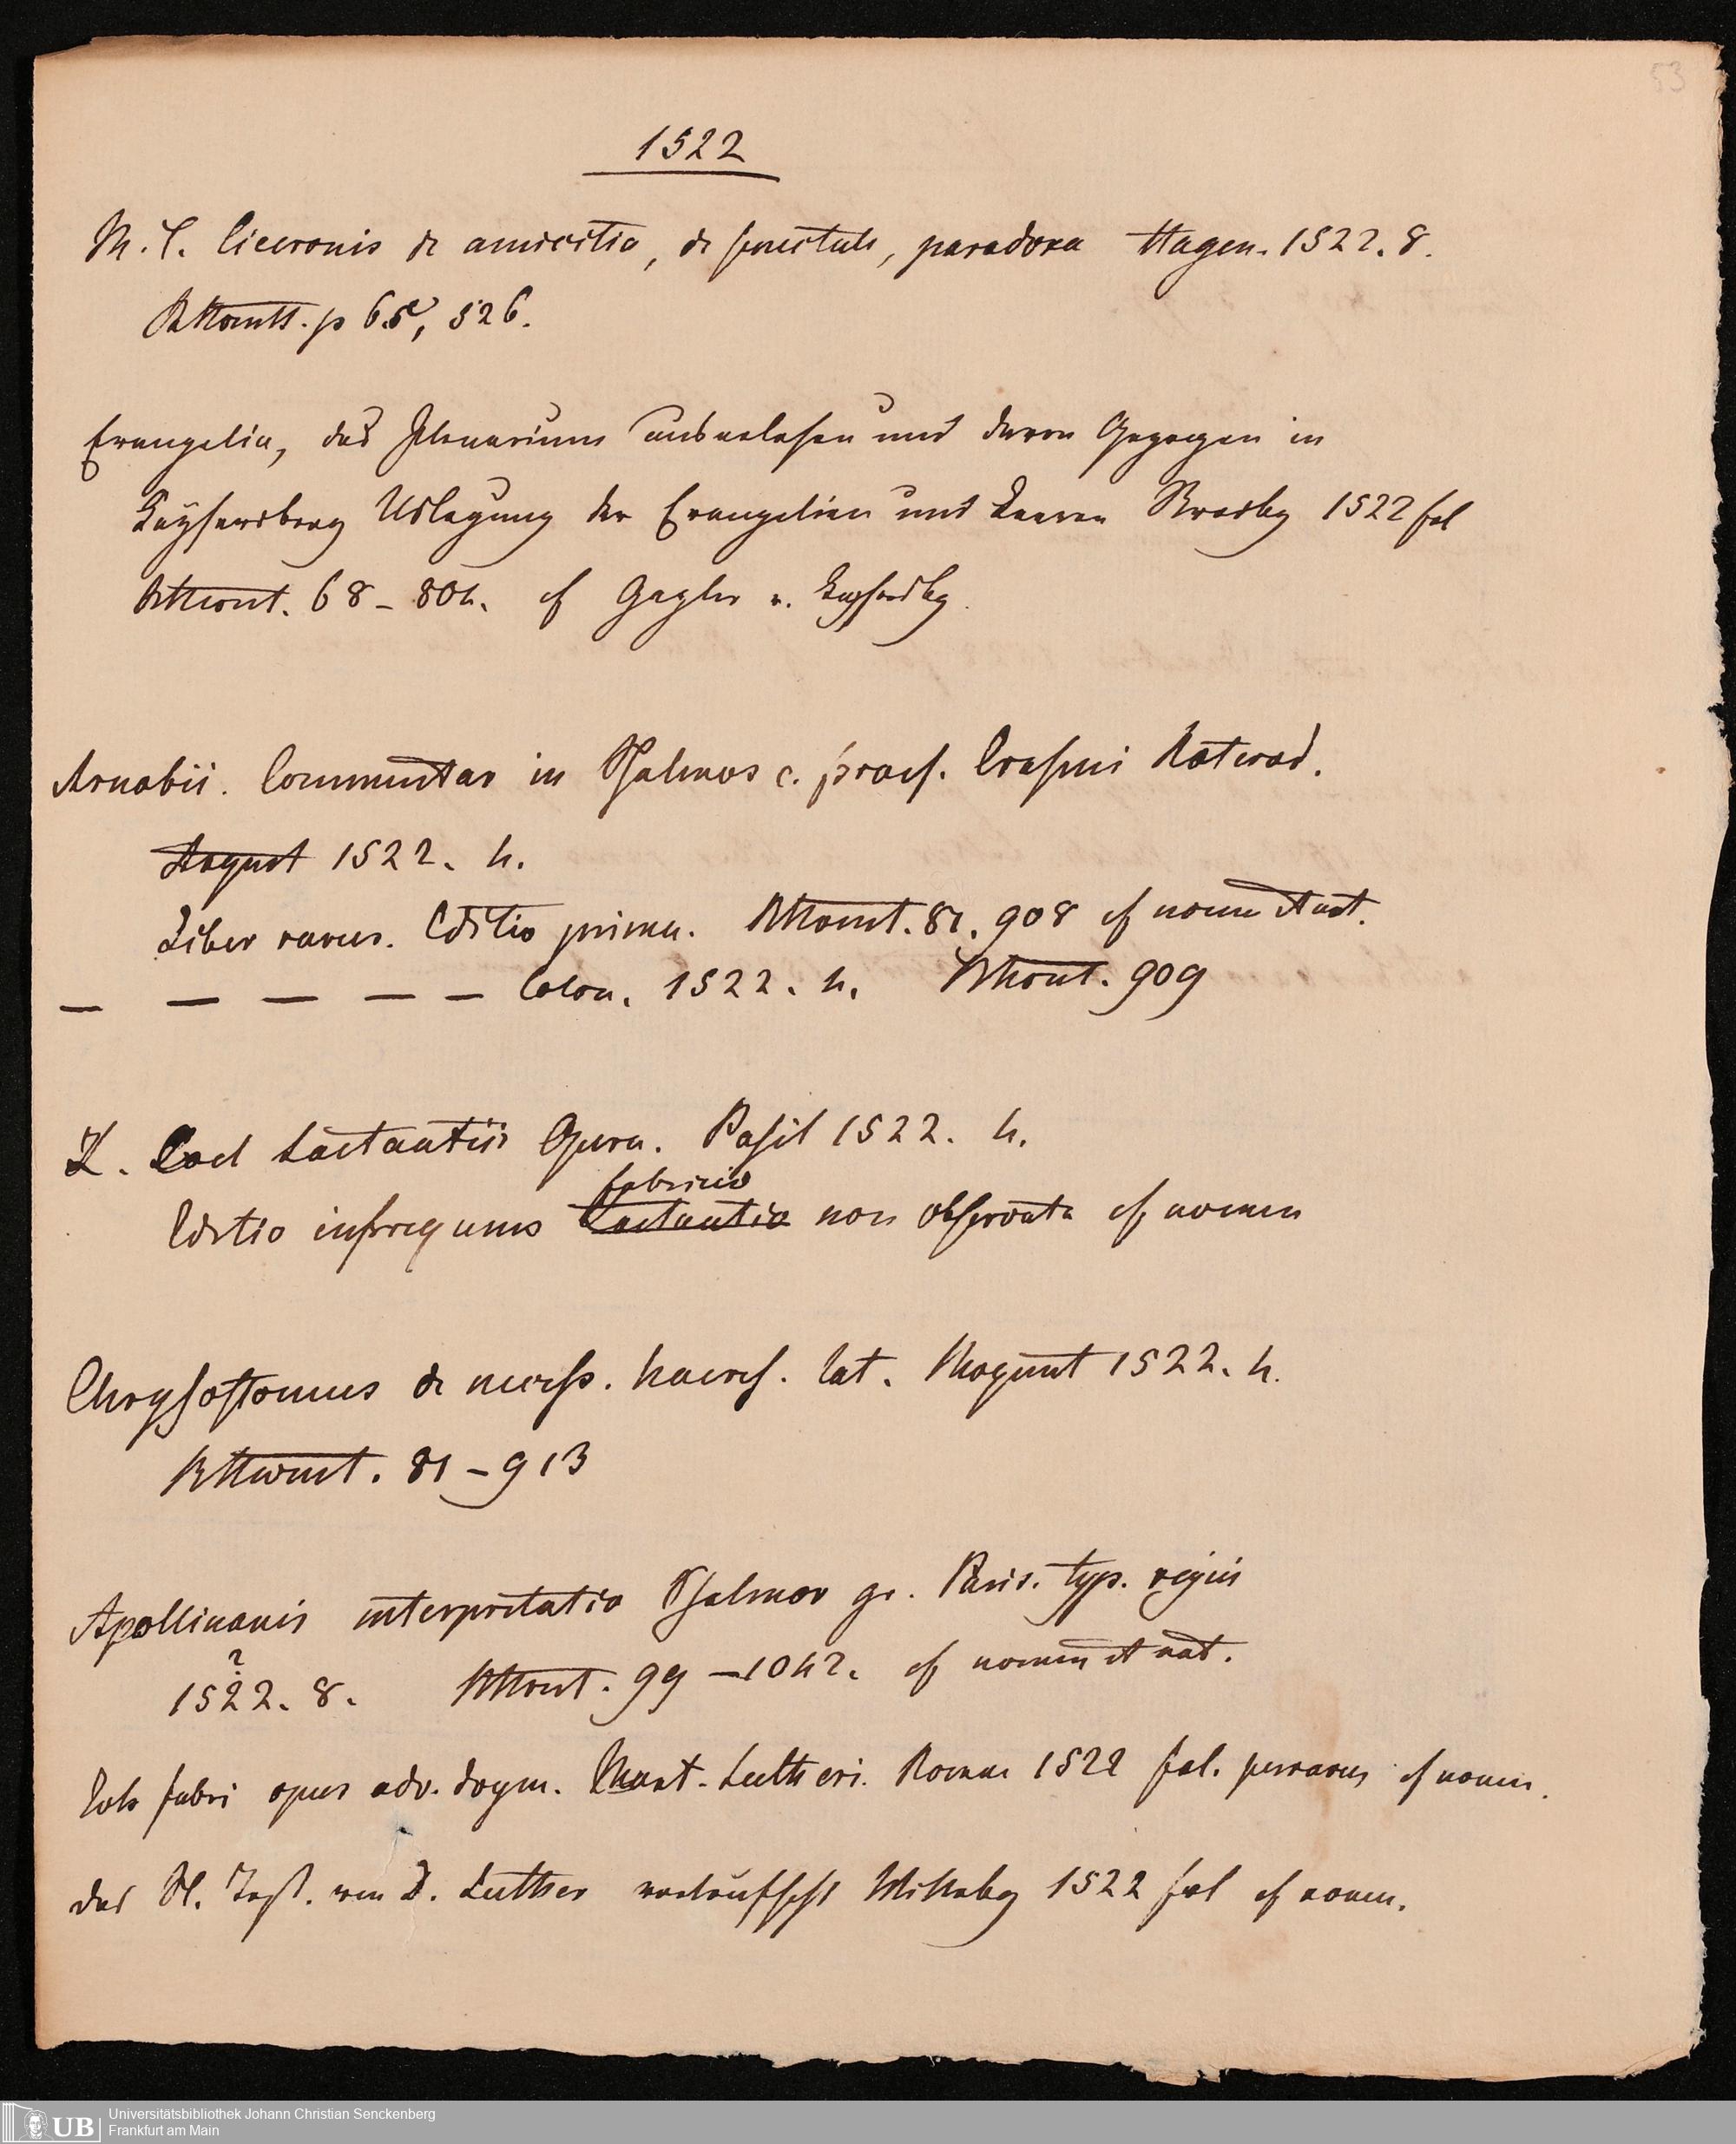 53
1522
M. T. Ciceronis de amicitia, de senectute, paradoxa Hagen. 1522. 8.
p 65, 526.
Evangelia, das Plenarium ausserlesen und davon gezogen in
Keysersberg Uslegung der Evangelien und Leeren Strasbg 1522 fol
68 – 804. cf Geyler v. Keysersbg.
Arnobii. Commentar in Psalmos c. praef. Erasmi Roterod.
August 1522. 4.
Liber rarus. Editio prima. 81. 908 cf nomen Aut.
— — — — — Colon. 1522. 4. 909
L. Coel Lactantii Opera. Basil 1522. 4.
fabricio
Editio infrequens Lactantio non observata cf nomen
Chrysostomus de haeres. lat. Mogunt 1522. 4.
81 – 913
Apollinaris interpretatio Psalmor gr. Paris. typ. regiis
?
1522. 8. 99 – 1042. cf nomen aut.
Joh fabri opus adv. dogm. Mart. Lutheri. Romae 1522 fol. perrarus cf nomen.
das N. Test. von D. Luther verteutscht Wittenbg 1522 fol cf nomen.
UB
Universitätsbibliothek Johann Christian Senckenberg
Frankfurt am Main